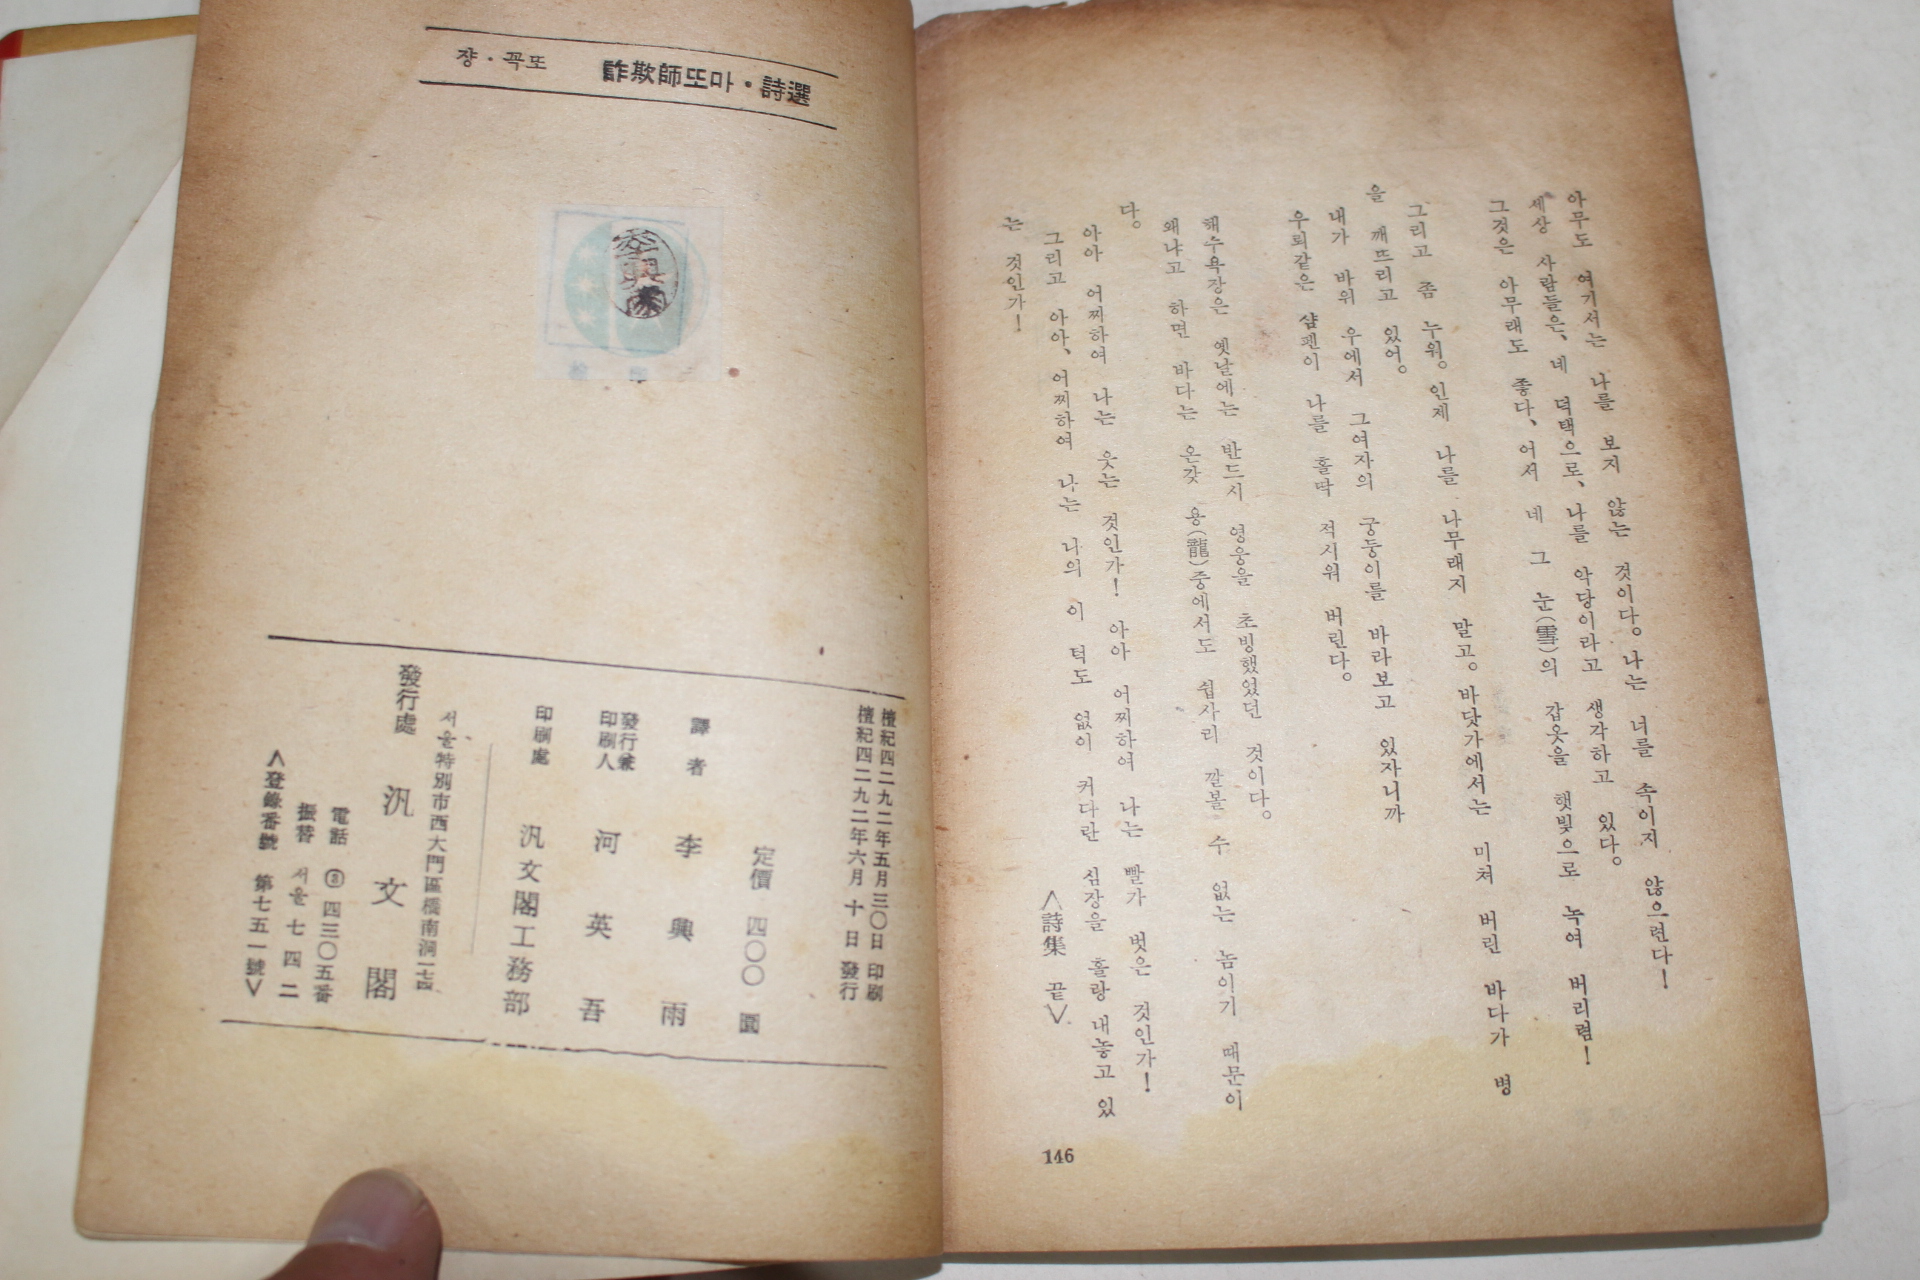 아무도 여기서는 나를 보지 않는 것이다。나는 너를 속이지 않으련다!
세상 사람들은、네 덕택으로、나를 악당이라고 생각하고 있다。
그것은 아무래도 좋다、어서 네 그 눈(雪)의 갑옷을 햇빛으로 녹여 버리렴!
그리고 좀 누워。인제 나를 나무래지 말고。바닷가에서는 미쳐 버린 바다가 병
을 깨뜨리고 있어。
내가 바위 우에서 그여자의 궁둥이를 바라보고 있자니까
우뢰같은 샴펜이 나를 홀딱 적시워 버린다。
해수욕장은 옛날에는 반드시 영웅을 초빙했었던 것이다。
왜냐고 하면 바다는 온갖 용(龍)중에서도 쉽사리 깔볼 수 없는 놈이기 때문이
다。
아아 어찌하여 나는 웃는 것인가! 아아 어찌하여 나는 빨가 벗은 것인가!
그리고 아아、어찌하여 나는 나의 이 턱도 없이 커다란 심장을 홀랑 내놓고 있
는 것인가!
<詩集 끝>
146
쟝・꼭또 詐欺師또마・詩選
李興雨
檀紀四二九二年五月三〇日 印刷
檀紀四二九二年六月 十 日 發行
定價 四〇〇 圜
譯者 李興雨
發行兼印刷人 河英吾
印刷處 汎文閣工務部
서울特別市西大門區橋南洞一七四
發行處 汎文閣
電話 ③ 四三〇五番
振替 서울 七四二
<登錄番號 第七五一號>